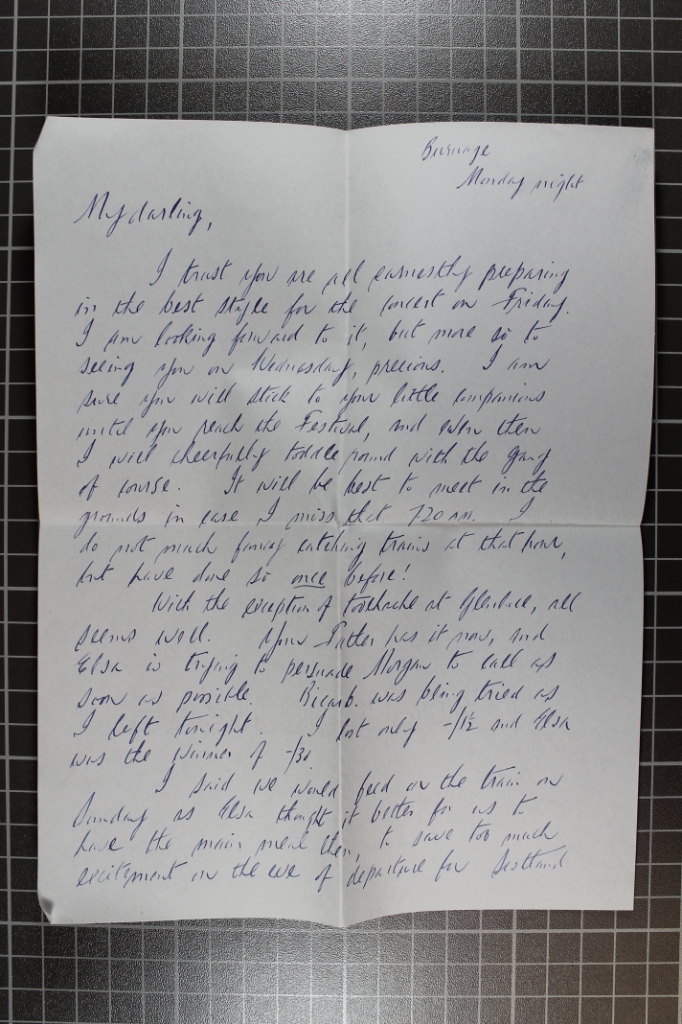 Burnage
Monday night
My darling,
I trust you are all earnestly preparing
in the best style for the concert on Friday.
I am looking forward to it, but more so to
seeing you on Wednesday, precious. I am
sure you will stick to your little companions
until you reach the Festival, and even then
I will cheerfully toddle round with the gang
of course. It will be best to meet in the
grounds in case I miss that 7.20 am. I
do not much fancy catching trains at that hour,
but have done so once before!
With the exception of toothache at, all
seems well. Your Father has it now, and
Elsa is trying to persuade Morgan to call as
soon as possible. Bicarb. was being tried as
I left tonight. I lost only -/1½ and Elsa
was the winner of -/3d.
I said we would feed on the train on
Sunday as Elsa thought it better for us to
have the main meal then, to save too much
excitement on the eve of departure for Scotland